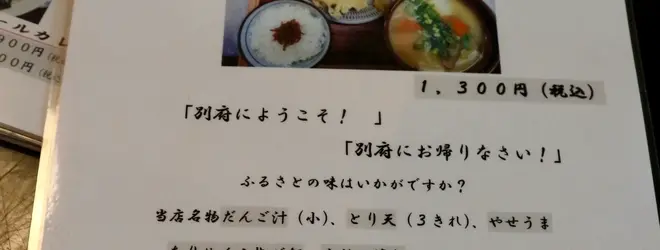 ールカレ
900円(税
00円(税
1,300円(税込)
「別府にようこそ! 」
「別府にお帰りなさい!」
ふるさとの味はいかがですか?
当店名物だんご汁(小)、とり天(3きれ)、やせうま